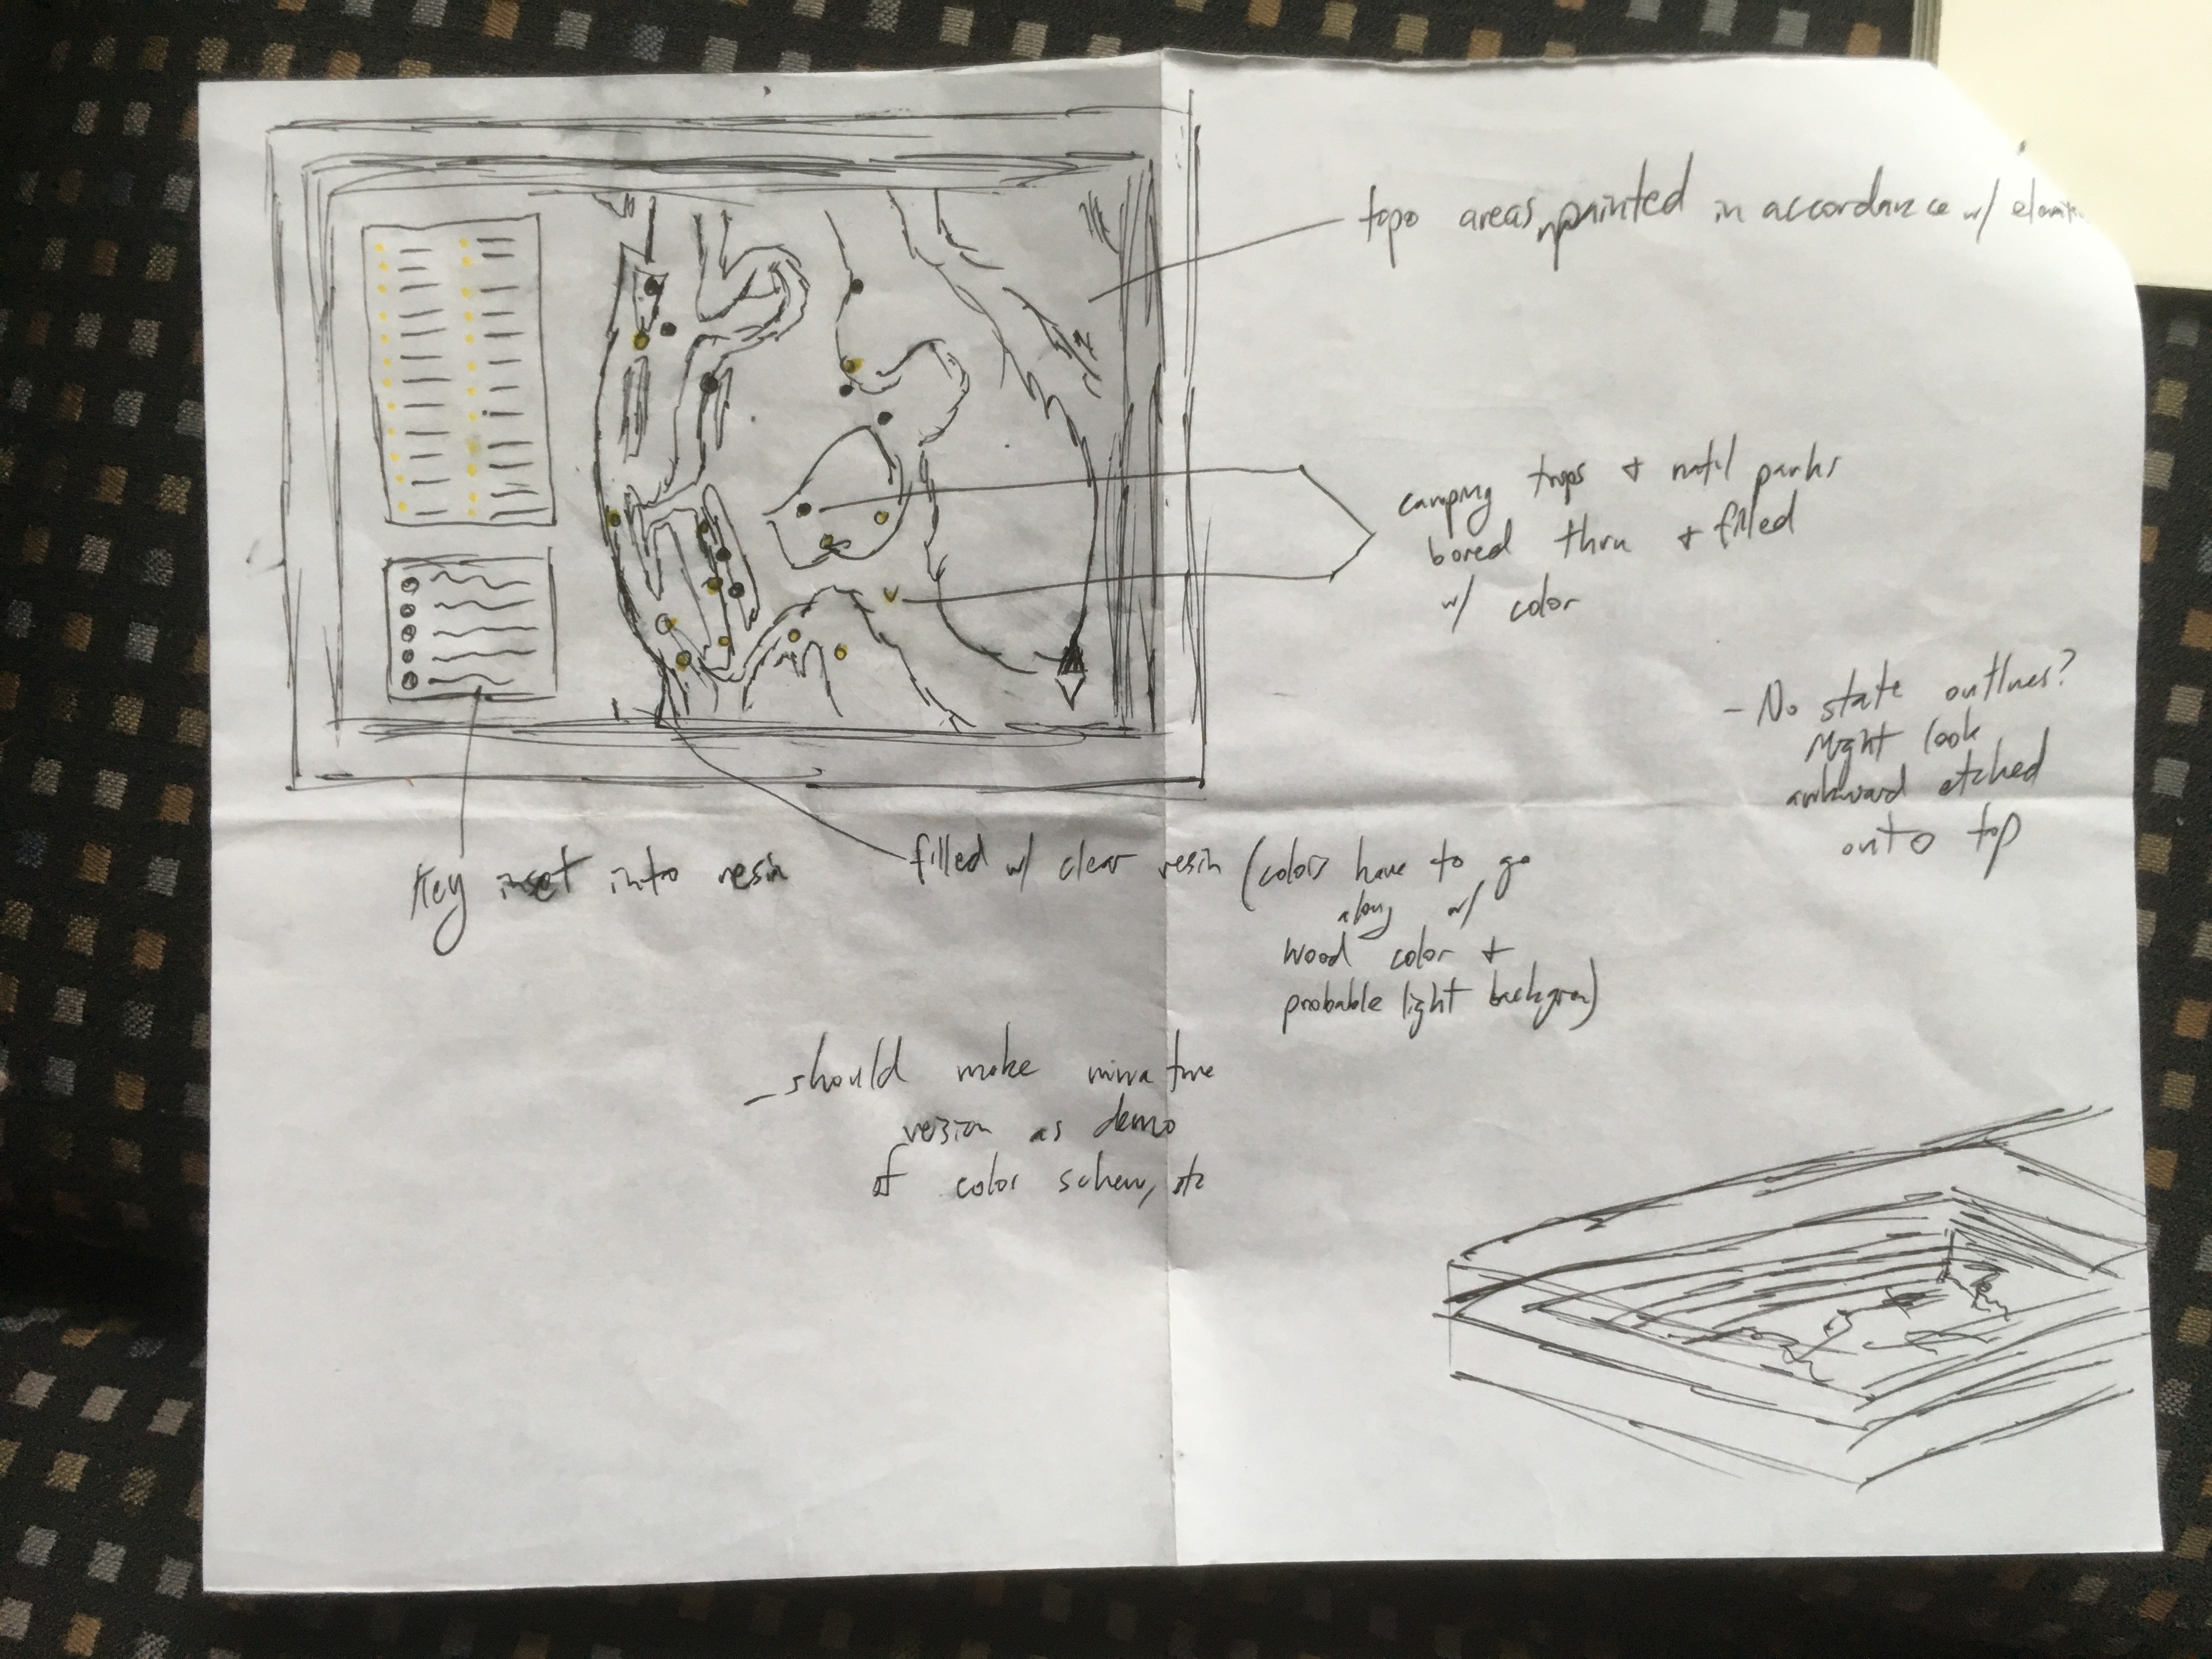 topo areas, painted in accordance w/
camping trips + nat'l parks
bored thru + filled
w/ color
- No state outlines?
Might look
awkward etched
onto top
Key inset into resin
filled w/ clear resin (colors have to go
along w/
wood color +
probable light
- should make
version as demo
of color